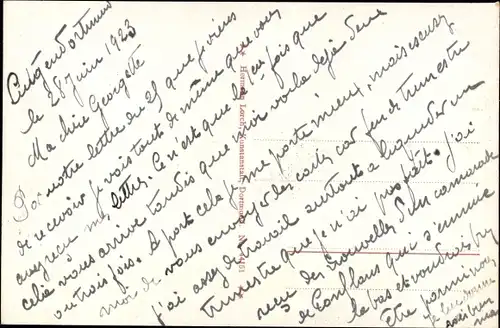 Lütgendortmund
le 28 Juin 1923
Ma chère Georgette
Par votre lettre du 25 que je viens
de recevoir je vois tout de même que vous
avez reçu ma lettre. Ce n'est que la 1ère fois que
celà vous arrive tandis que moi voila déjà deux
ou trois fois. A part cela je me porte mieux, mais excusez
moi de vous envoyer des cartes car fin de trimestre
j'ai assez de travail surtout a liquider un
trimestre que je n'ai pas fait. J'ai
reçu des nouvelles d'un camarade
de Conflans qui s'ennuie
la bas et voudrait
être parmi nous
Hermann Lorch, Kunstanstalt, Dortmund